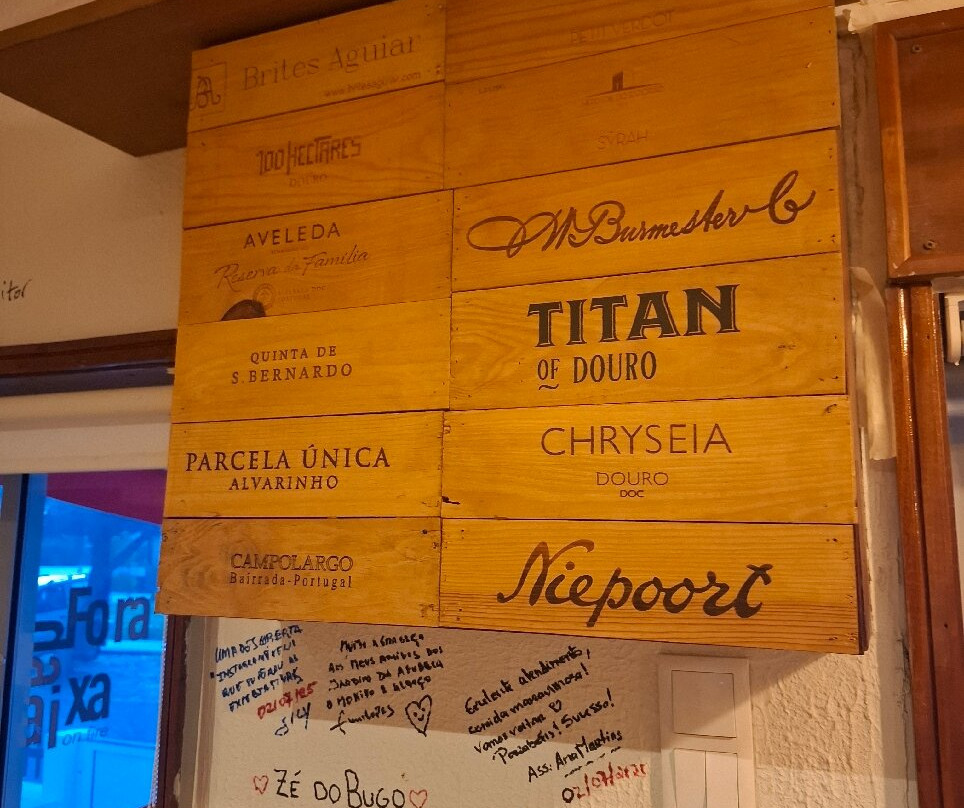 Brites Aguiar
www.britesaguiar.com
100 HECTARES
DOURO
AVELEDA
Reserva da Família
QUINTA DE
S. BERNARDO
PARCELA ÚNICA
ALVARINHO
CAMPOLARGO
Bairrada-Portugal
PETIT VERDOT
SYRAH
W Burmester & C
TITAN
OF DOURO
CHRYSEIA
DOURO
DOC
Niepoort
itor
Fora
aixa
on fire
UMA DESCOBERTA
QUE
EXPECTATIVAS
02/07/25
MUITO
AOS MEUS AMIGOS DOS
JARDINS DA
O MORFIM E
Exelente atendimento,
comida maravilhosa!
Vamos voltar
Parabéns! Sucesso!
ASS: Ana Martins
02/07/2025
ZÉ DO BUGO